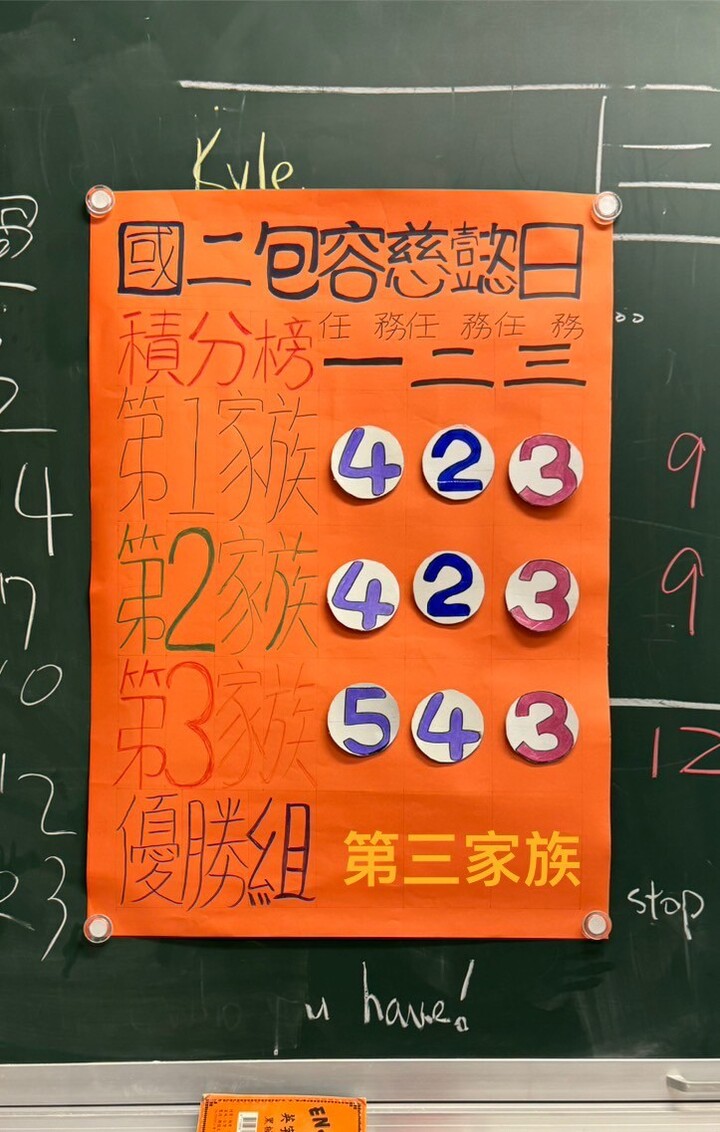 Kyle
國二包容慈懿日
積分榜 任務一 任務二 任務三
第1家族 4 2 3
9
第2家族 4 2 3
9
第3家族 5 4 3
12
優勝組 第三家族
stop
u have!
4
7
12
23
EN
英